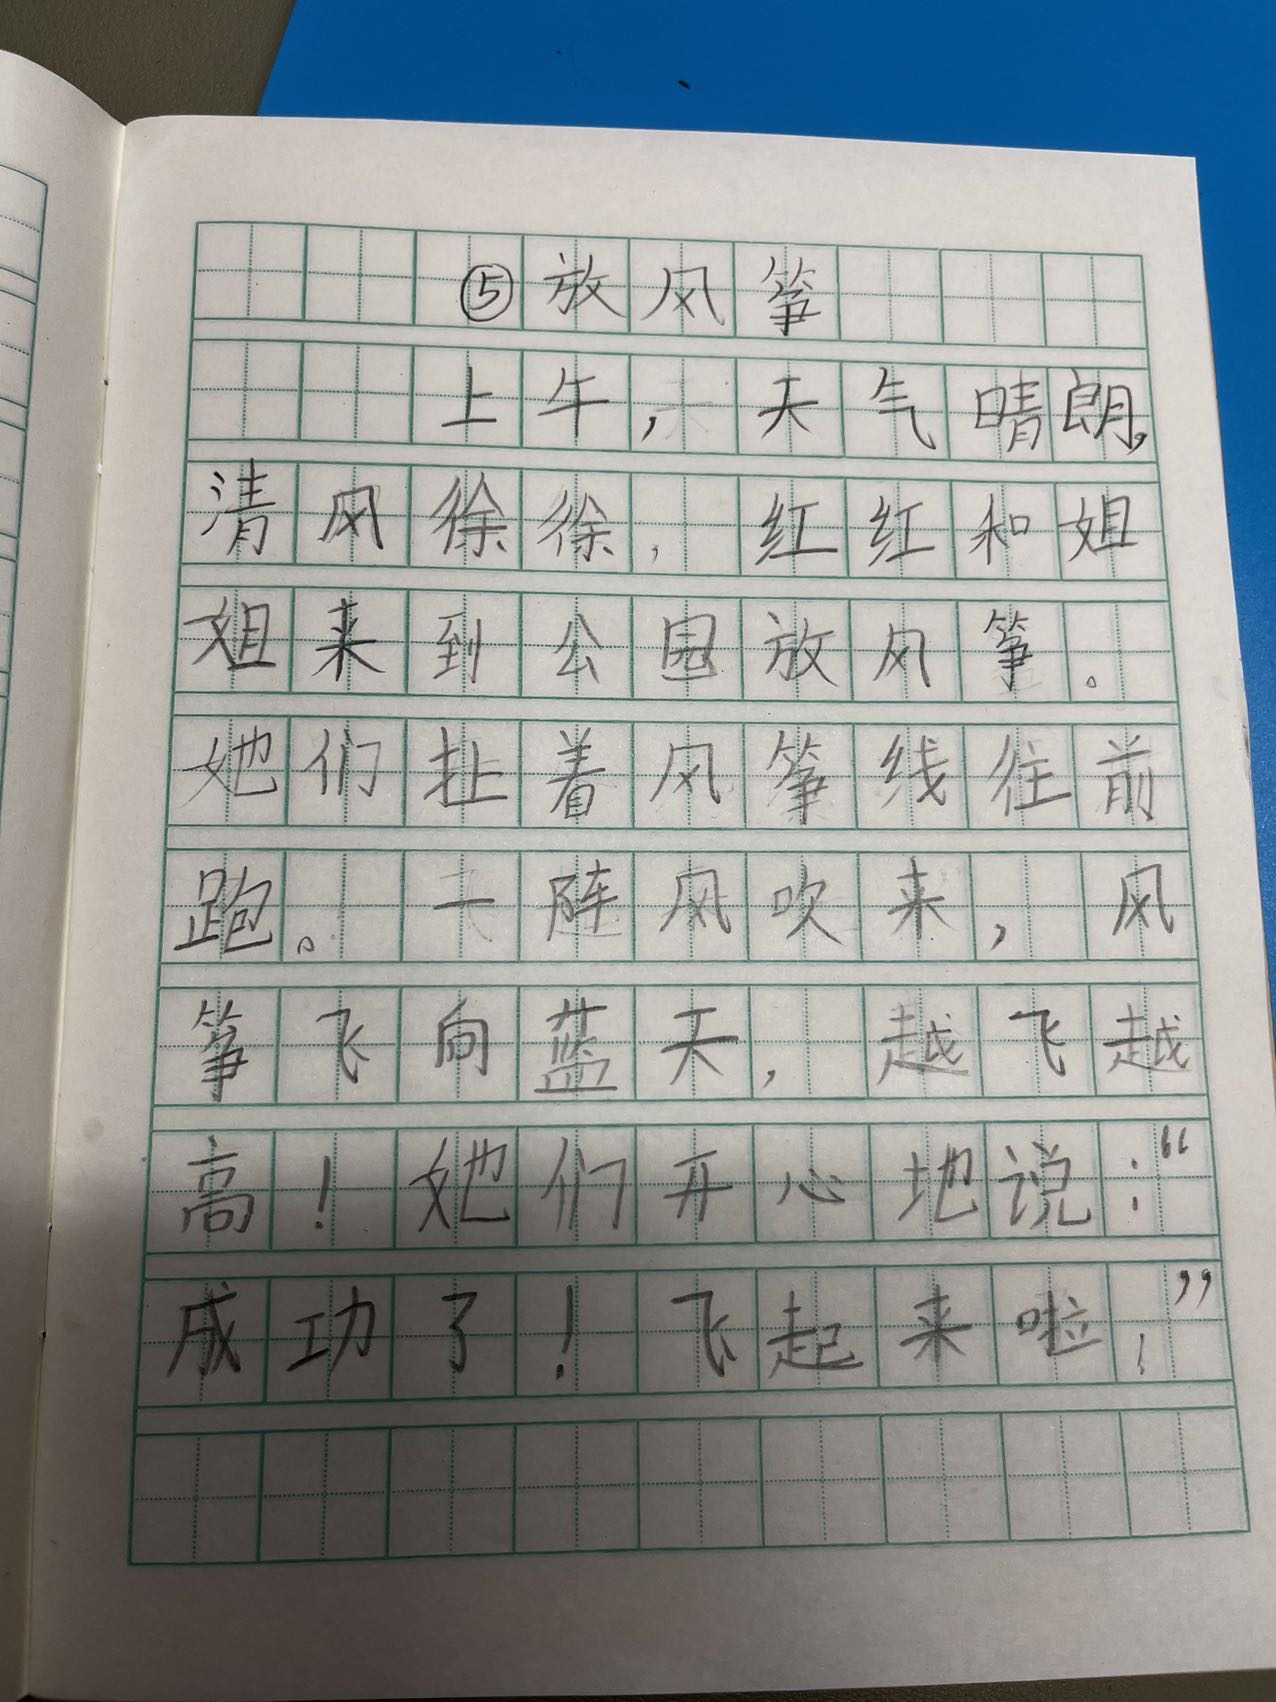 ⑤放风筝
上午,天气晴朗,
清风徐徐,红红和姐
姐来到公园放风筝。
她们扯着风筝线往前
跑。一阵风吹来,风
筝飞向蓝天,越飞越
高!她们开心地说:“
成功了!飞起来啦!”